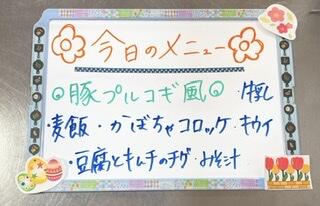 今日のメニュー
◎豚プルコギ風◎ ・牛乳
・麦飯・かぼちゃコロッケ・キウイ
・豆腐とキムチのチゲ・みそ汁